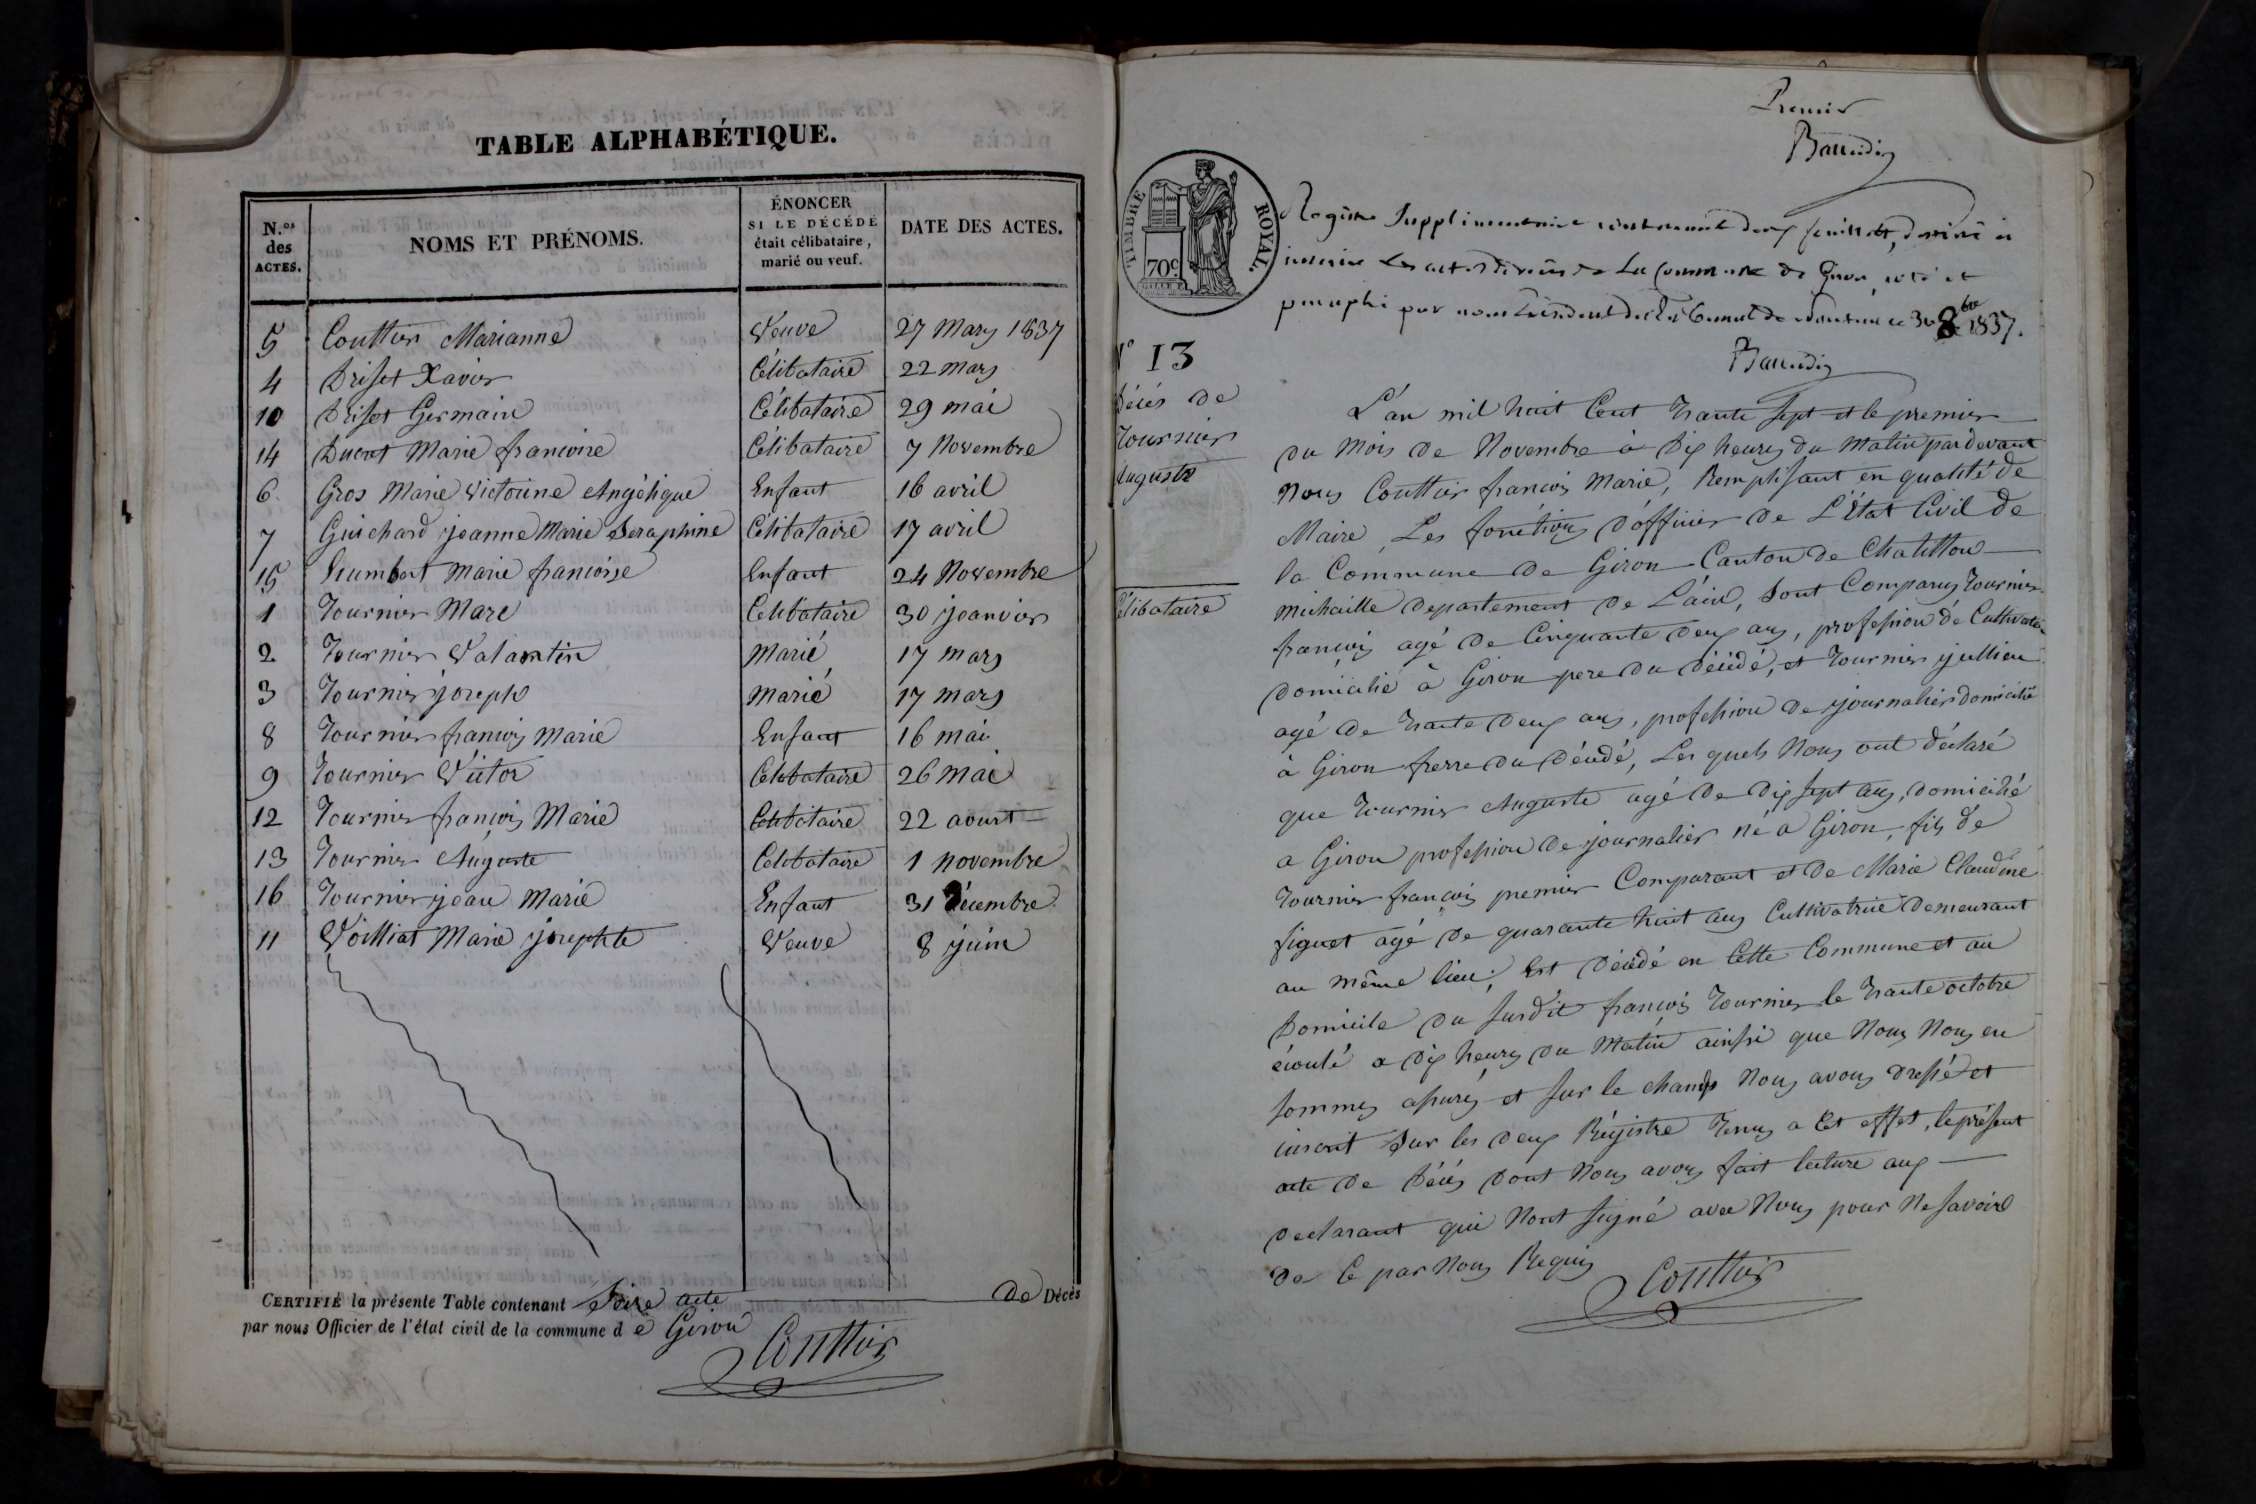 TABLE ALPHABÉTIQUE.
N.os des ACTES.
NOMS ET PRÉNOMS.
ÉNONCER SI LE DÉCÉDÉ était célibataire, marié ou veuf.
DATE DES ACTES.
5 Couttier Marianne Veuve 27 Mars 1837
4 Driset Xavier Célibataire 22 mars
10 Driset Germain Célibataire 29 mai
14 Ducret Marie francoise Célibataire 7 Novembre
6 Gros Marie Victorine Angélique Enfant 16 avril
7 Guichard jeanne Marie Seraphine Célibataire 17 avril
15 Humbert Marie francoise Enfant 24 Novembre
1 Tournier Marc Célibataire 30 jeanvier
2 Tournier Valantin Marié 17 mars
3 Tournier joseph Marié 17 mars
8 Tournier francois Marie Enfant 16 mai
9 Tournier Victor Célibataire 26 Mai
12 Tournier francois Marie Célibataire 22 aoust
13 Tournier Auguste Celibataire 1 novembre
16 Tournier jean Marie Enfant 31 Décembre
11 Voilliat Marie josephte Veuve 8 juin
CERTIFIÉ la présente Table contenant Seize acte de Décès
par nous Officier de l'état civil de la commune de Giron
Couttier
Premier
Baudin
TIMBRE ROYAL.
70c
Registre Supplémentaire contenant deux feuillets, destiné à
inscrire les actes de décès de la Commune de Giron, coté et
paraphé par nous Président du Tribunal de Nantua ce 30 8bre 1837.
Baudin
N° 13
Décés de
Tournier
Auguste
Célibataire
L'an mil huit Cent trante sept et le premier
du Mois de Novembre à dix heures du Matin pardevant
Nous Couttier francois Marie, Remplisant en qualité de
Maire, Les fonctions d'officier de L'État Civil de
la Commune de Giron Canton de Chatillon
michaille departement de L'ain, Sont Comparus Tournier
francois agé de Cinquante deux ans, profession de Cultivateur
domicilié à Giron pere du décédé, et Tournier jullien
agé de trante deux ans, profession de journalier domicilié
à Giron frerre du décédé, Les quels Nous ont déclaré
que Tournier Auguste agé de dix sept ans, domicilié
a Giron profession de journalier né a Giron, fils de
Tournier francois premier Comparant et de Marie Claudine
figuet agé de quarante huit ans Cultivatrice demeurant
au même lieu; Est décédé en Cette Commune et au
Domicile du susdit francois Tournier le trante octobre
écoulé a dix heures du Matin ainsi que Nous Nous en
sommes assurés et sur le champs Nous avons dressé et
inscrit Sur les deux Régistre tenus a Cet effet, le présent
acte de Décés dont Nous avons fait lecture aux
declarant qui Nont signé avec Nous pour Ne savoire
de Ce par Nous Requis
Couttier